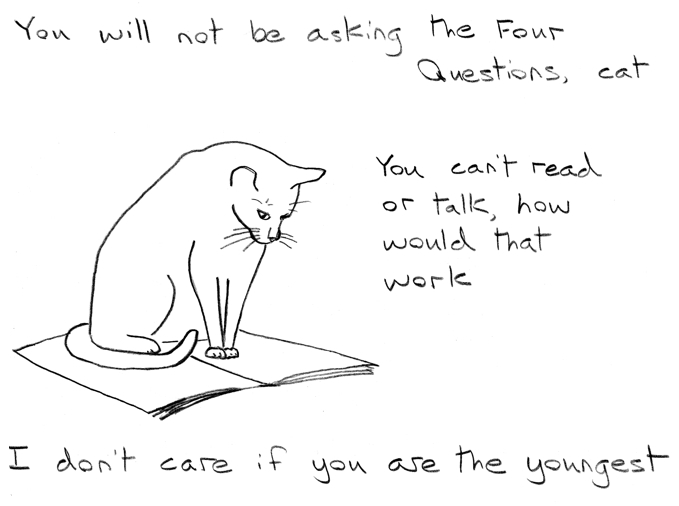 You will not be asking the Four
Questions, cat
You can't read
or talk, how
would that
work
I don't care if you are the youngest